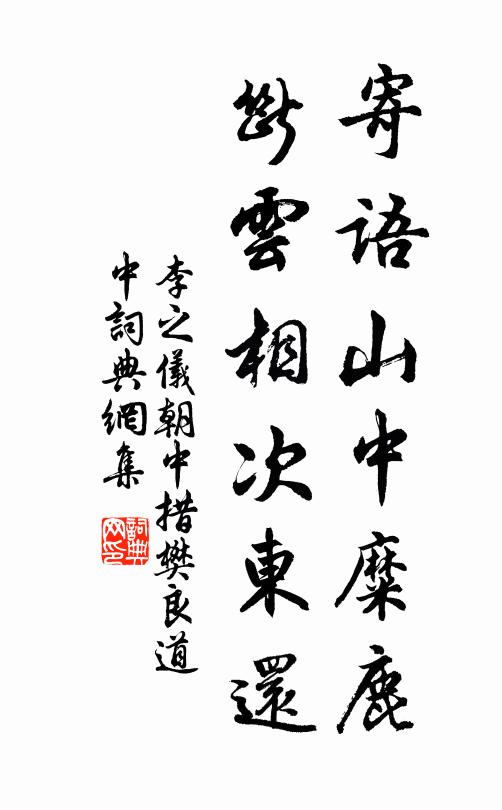 寄語山中糜鹿
斷雲相次東還
李之儀朝中措樊良道
中詞典網集
詞典網印